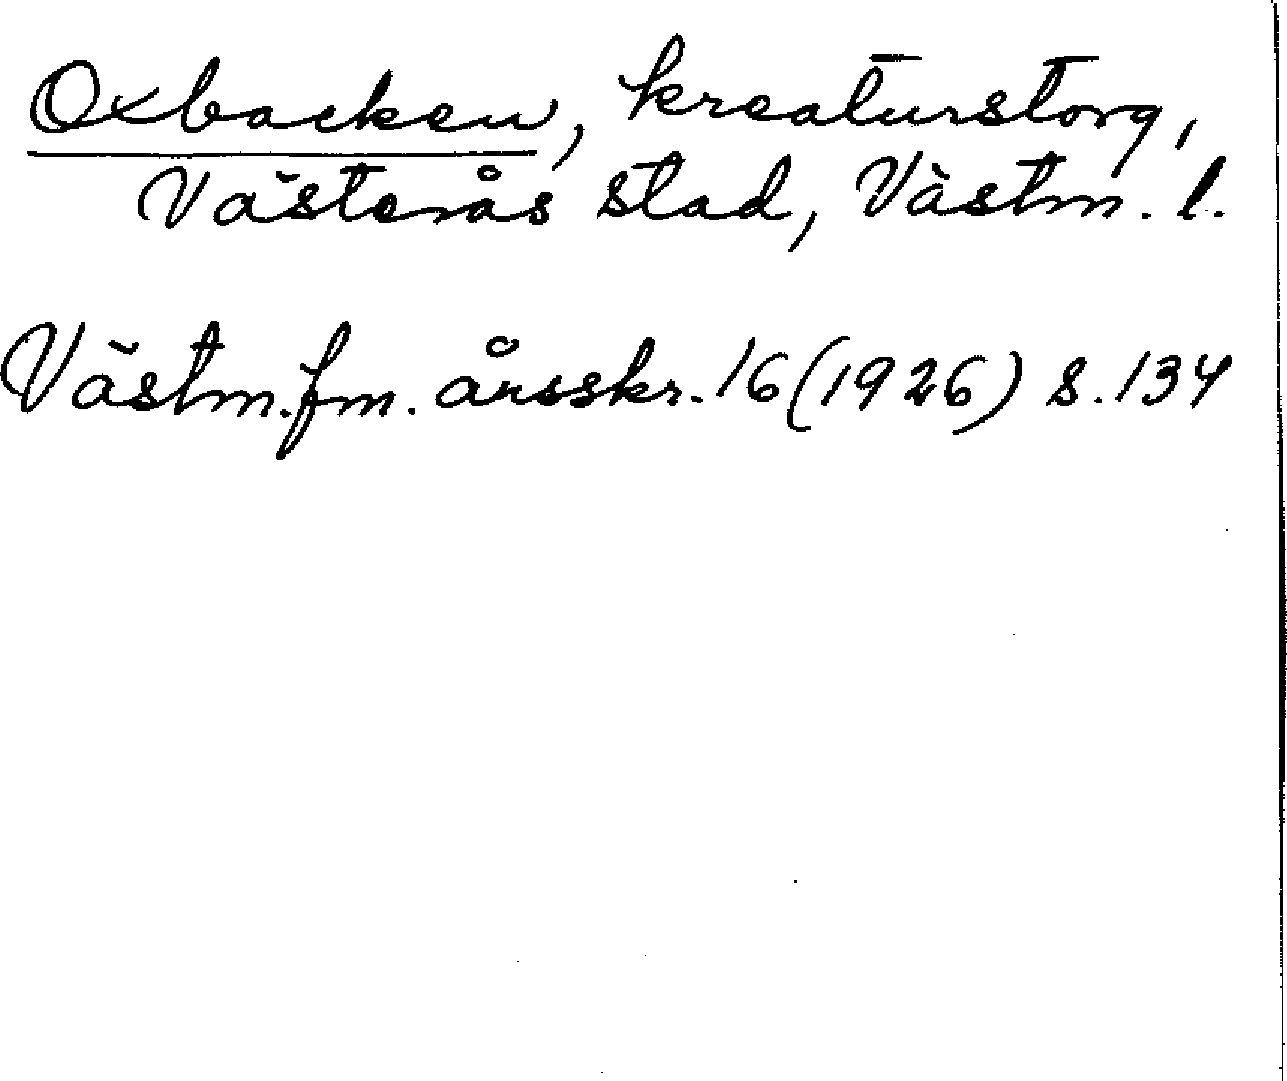 Oxbacken, kreaturstorg,
Västerås stad, Västm. l.
Västm.fm. årsskr. 16 (1926) s. 134